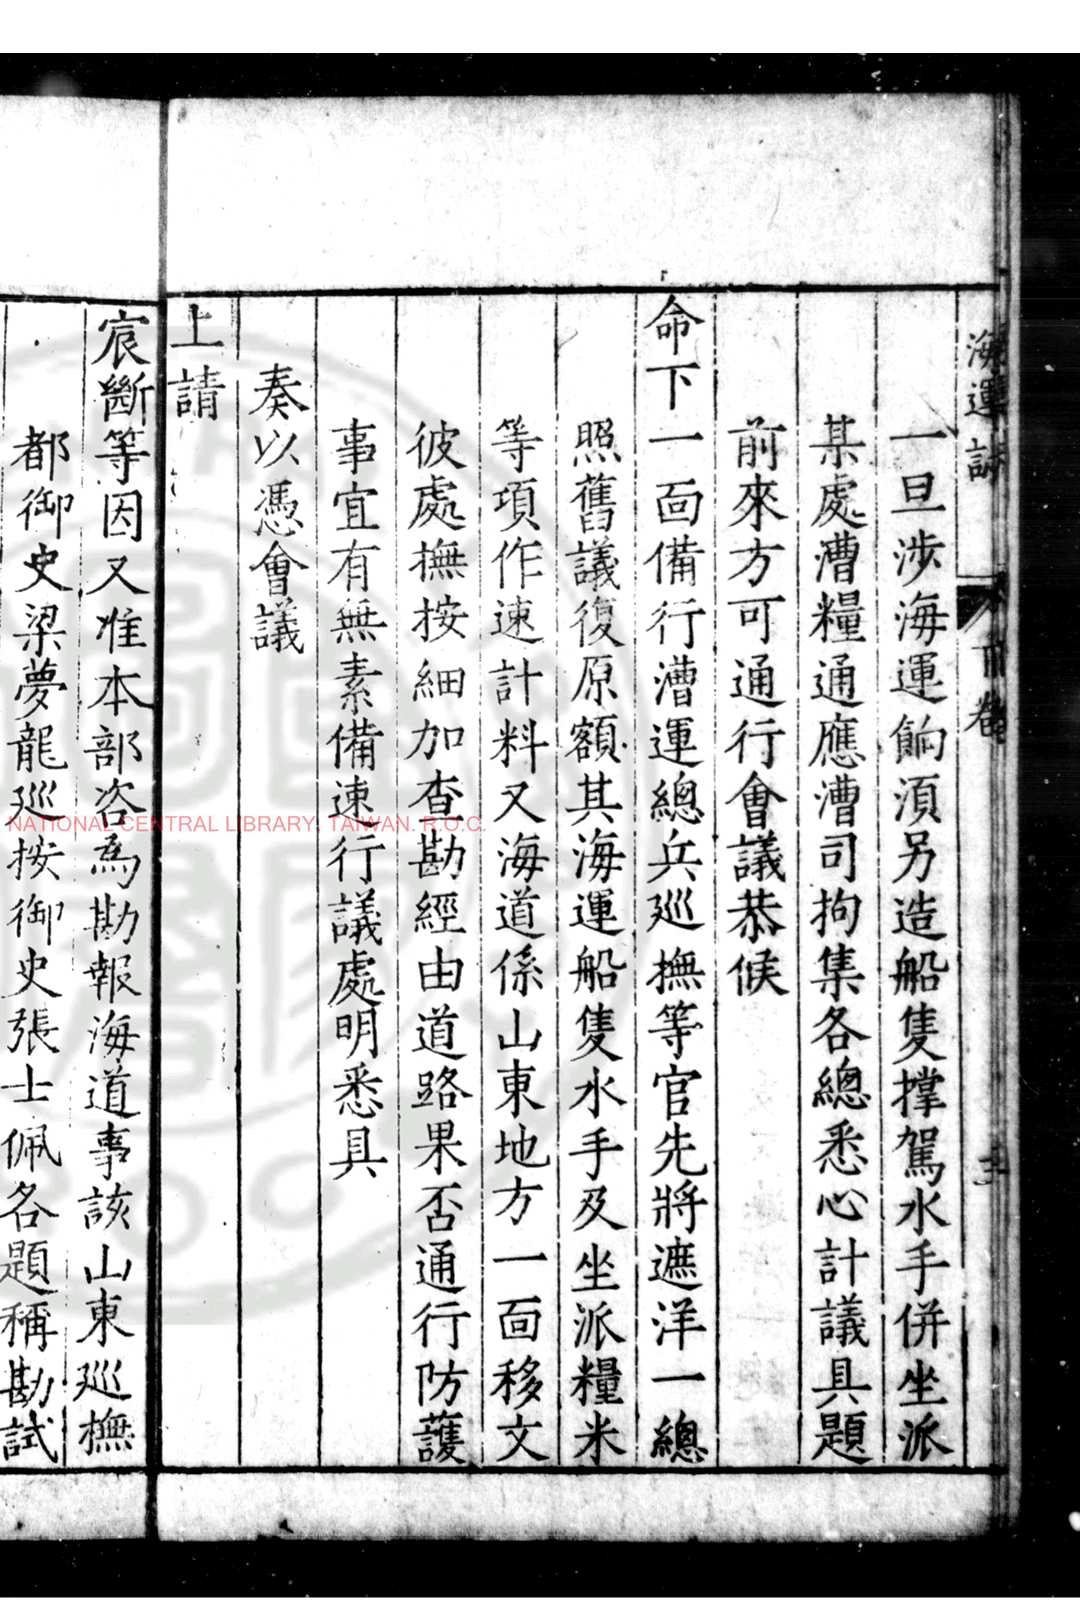 海運詳 前卷
一旦涉海運餉須另造船隻撑駕水手併坐派
某處漕糧通應漕司拘集各總悉心計議具題
前來方可通行會議恭候
命下一面備行漕運總兵巡撫等官先將遮洋一總
照舊議復原額其海運船隻水手及坐派糧米
等項作速計料又海道係山東地方一面移文
彼處撫按細加查勘經由道路果否通行防護
事宜有無素備速行議處明悉具
奏以憑會議
上請
宸斷等因又准本部咨為勘報海道事該山東巡撫
都御史梁夢龍巡按御史張士佩各題稱勘試
NATIONAL CENTRAL LIBRARY, TAIWAN. R.O.C.